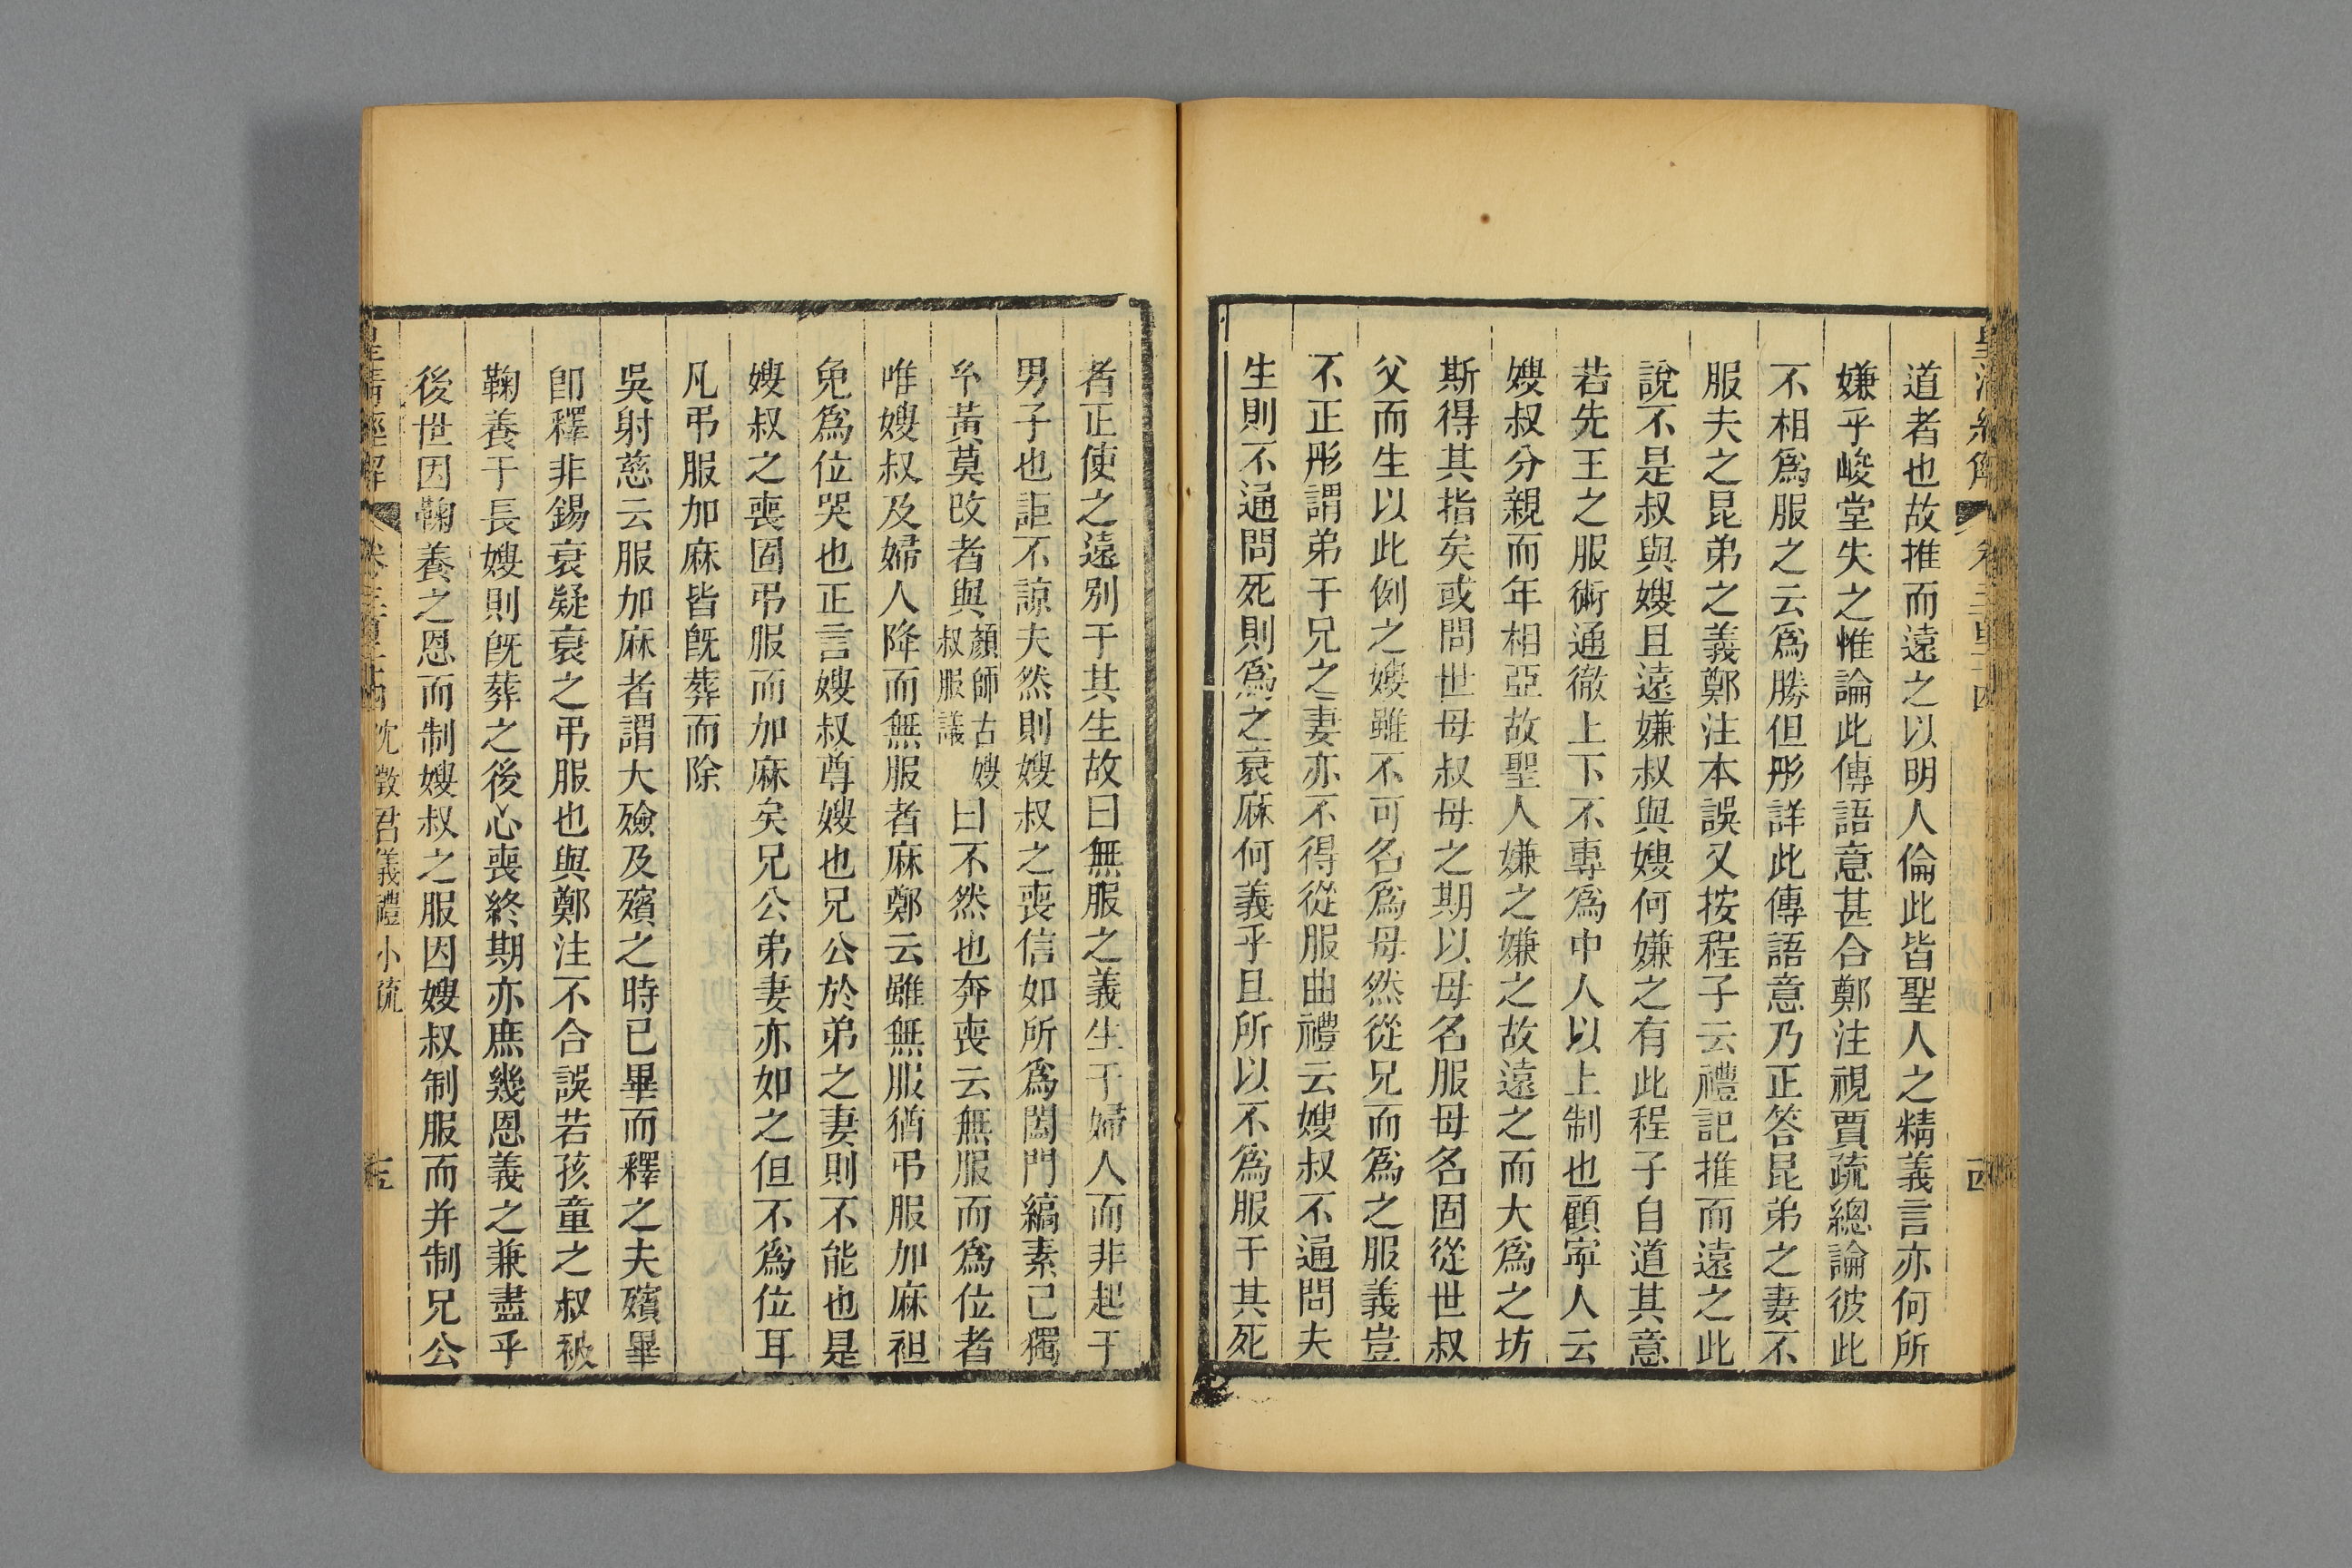 道者也故推而遠之以明人倫此皆聖人之精義言亦何所
嫌乎峻堂失之惟論此傳語意甚合鄭注視賈疏總論彼此
不相爲服之云爲勝但彤詳此傳語意乃正答昆弟之妻不
服夫之昆弟之義鄭注本誤又按程子云禮記推而遠之此
說不是叔與嫂且遠嫌叔與嫂何嫌之有此程子自道其意
若先王之服術通徹上下不專爲中人以上制也顧寜人云
嫂叔分親而年相亞故聖人嫌之嫌之故遠之而大爲之坊
斯得其指矣或問世母叔母之期以母名服母名固從世叔
父而生以此例之嫂雖不可名爲母然從兄而爲之服義豈
不正彤謂弟于兄之妻亦不得從服曲禮云嫂叔不通問夫
生則不通問死則爲之衰麻何義乎且所以不爲服于其死
者正使之遠别于其生故曰無服之義生于婦人而非起于
男子也詎不諒夫然則嫂叔之喪信如所爲闔門縞素己獨
糸黃莫改者與顏師古嫂叔服議曰不然也奔喪云無服而爲位者
唯嫂叔及婦人降而無服者麻鄭云雖無服猶弔服加麻袒
免爲位哭也正言嫂叔尊嫂也兄公於弟之妻則不能也是
嫂叔之喪固弔服而加麻矣兄公弟妻亦如之但不爲位耳
凡弔服加麻皆旣葬而除
吳射慈云服加麻者謂大殮及殯之時已畢而釋之夫殯畢
卽釋非錫衰疑衰之弔服也與鄭注不合誤若孩童之叔被
鞠養于長嫂則旣葬之後心喪終期亦庶幾恩義之兼盡乎
後世因鞠養之恩而制嫂叔之服因嫂叔制服而并制兄公
皇清經解 沈徵君儀禮小疏